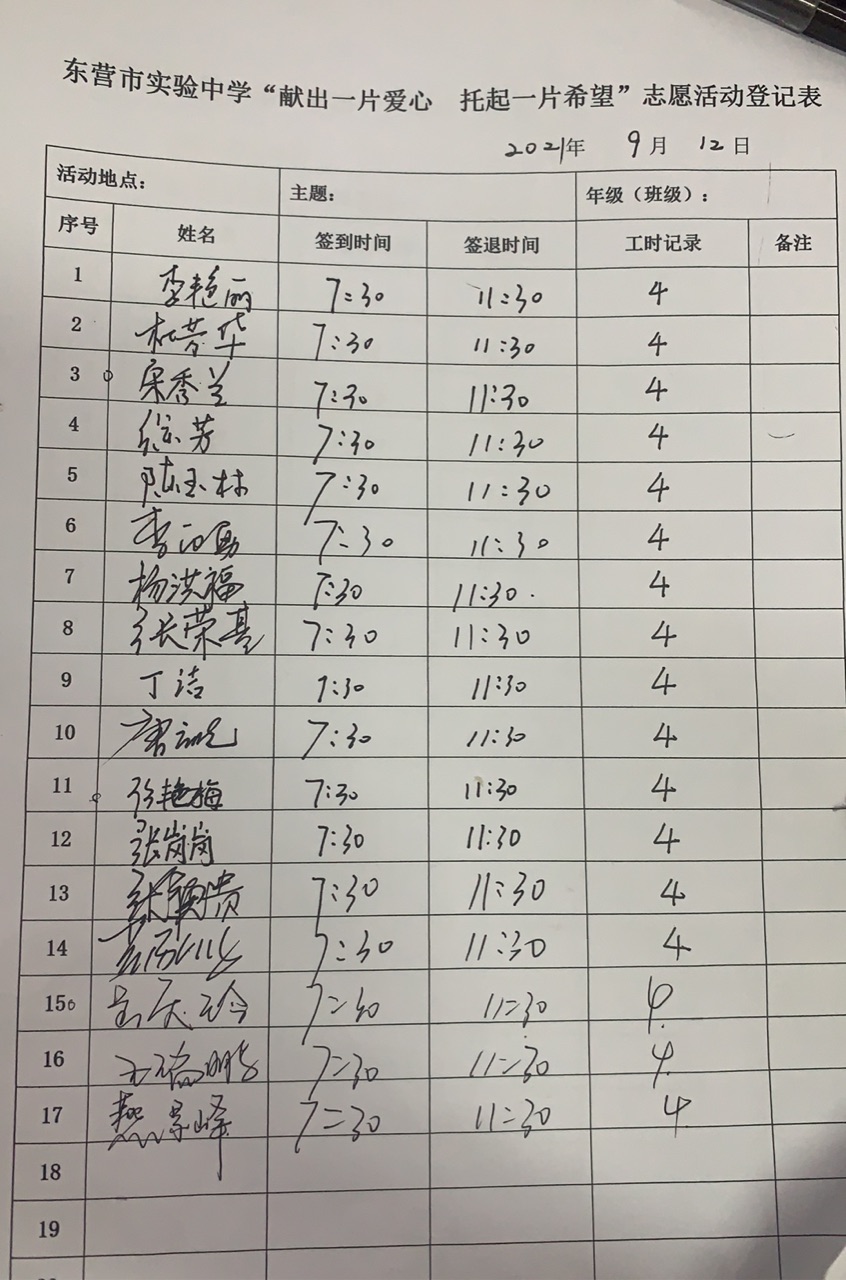 东营市实验中学“献出一片爱心 托起一片希望”志愿活动登记表
2021年 9月 12日
活动地点： 主题： 年级（班级）：
序号 姓名 签到时间 签退时间 工时记录 备注
1 李艳丽 7:30 11:30 4
2 杜芳华 7:30 11:30 4
3 宋秀兰 7:30 11:30 4
4 徐芳 7:30 11:30 4
5 陈玉林 7:30 11:30 4
6 7:30 11:30 4
7 杨洪福 7:30 11:30 4
8 张荣基 7:30 11:30 4
9 丁洁 7:30 11:30 4
10 7:30 11:30 4
11 徐艳梅 7:30 11:30 4
12 张岗岗 7:30 11:30 4
13 7:30 11:30 4
14 7:30 11:30 4
15 7:30 11:30 4
16 王瑞鹏 7:30 11:30 4
17 燕景峰 7:30 11:30 4
18
19